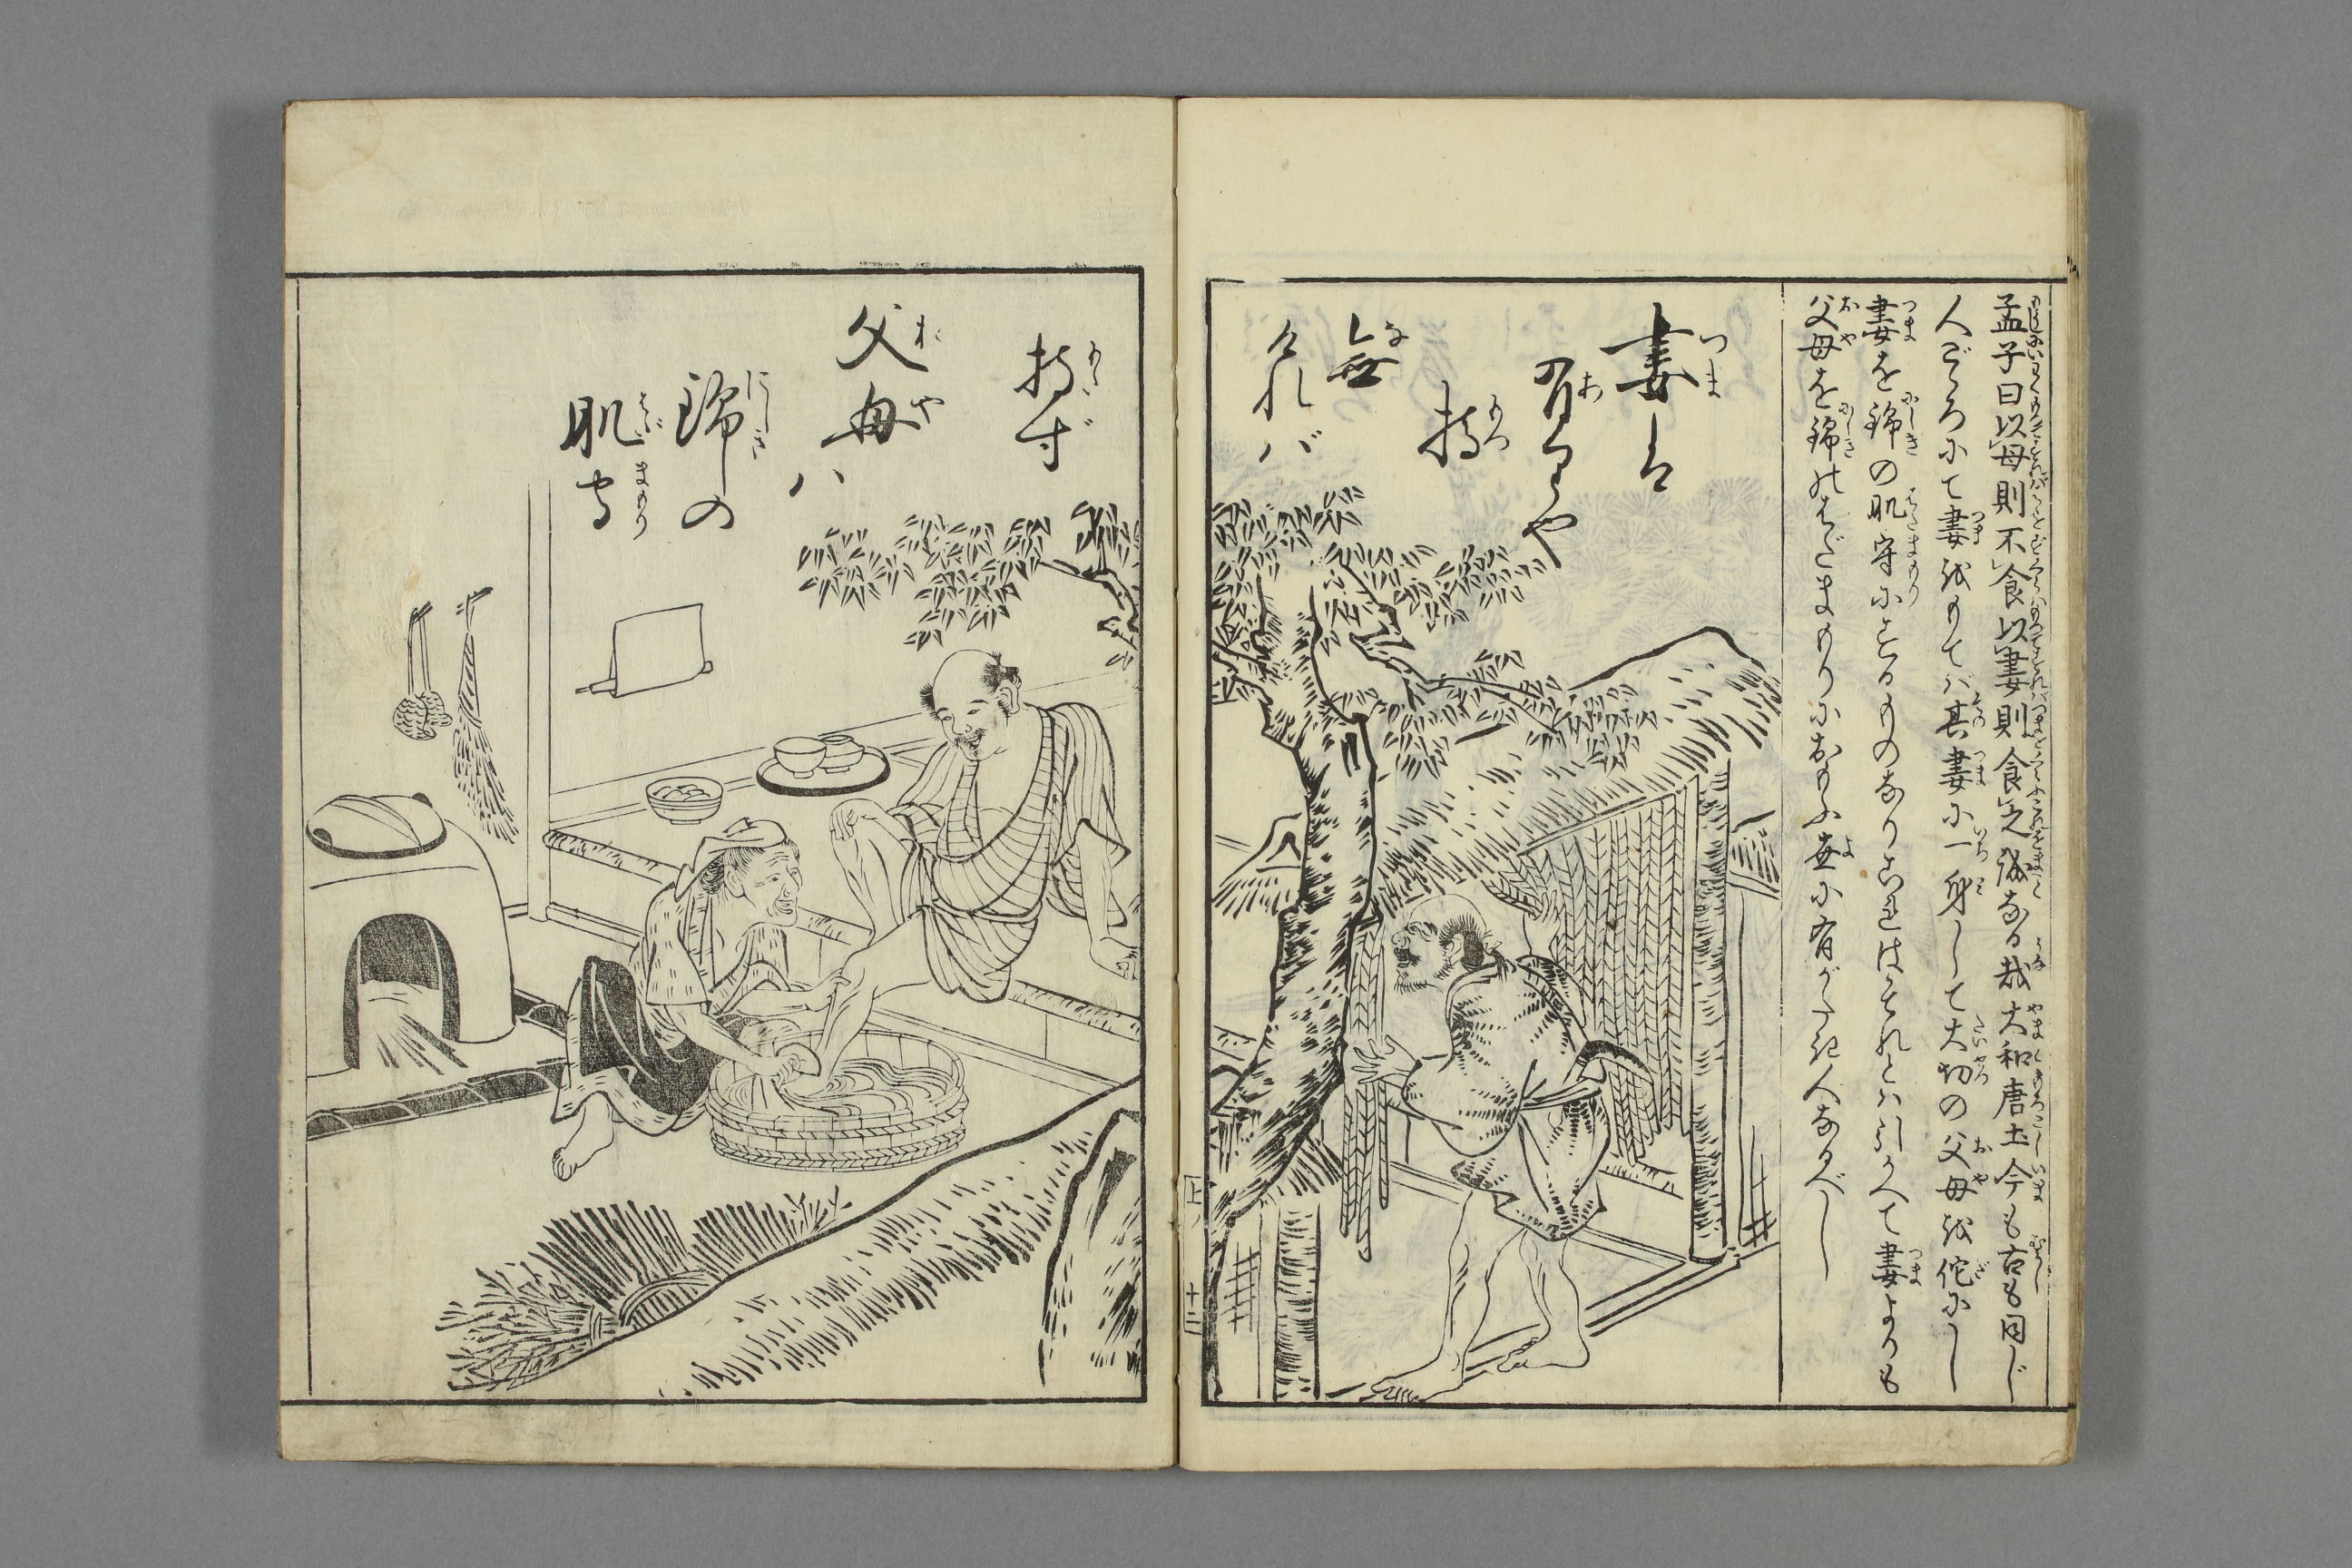 孟子曰以母則不食以妻則食之誠なる哉大和唐土今も古も同じ
人ごゝろにて妻をもてば其妻に一身して大切の父母を佗にし
妻を錦の肌守にするものなりこれはそれとは引かへて妻よりも
父母を錦のはだまもりにおもふ世に有がたき人なるべし
妻は
有りや
持
無
ければ
持ず
父母ハ
錦の
肌守
上ノ 十三